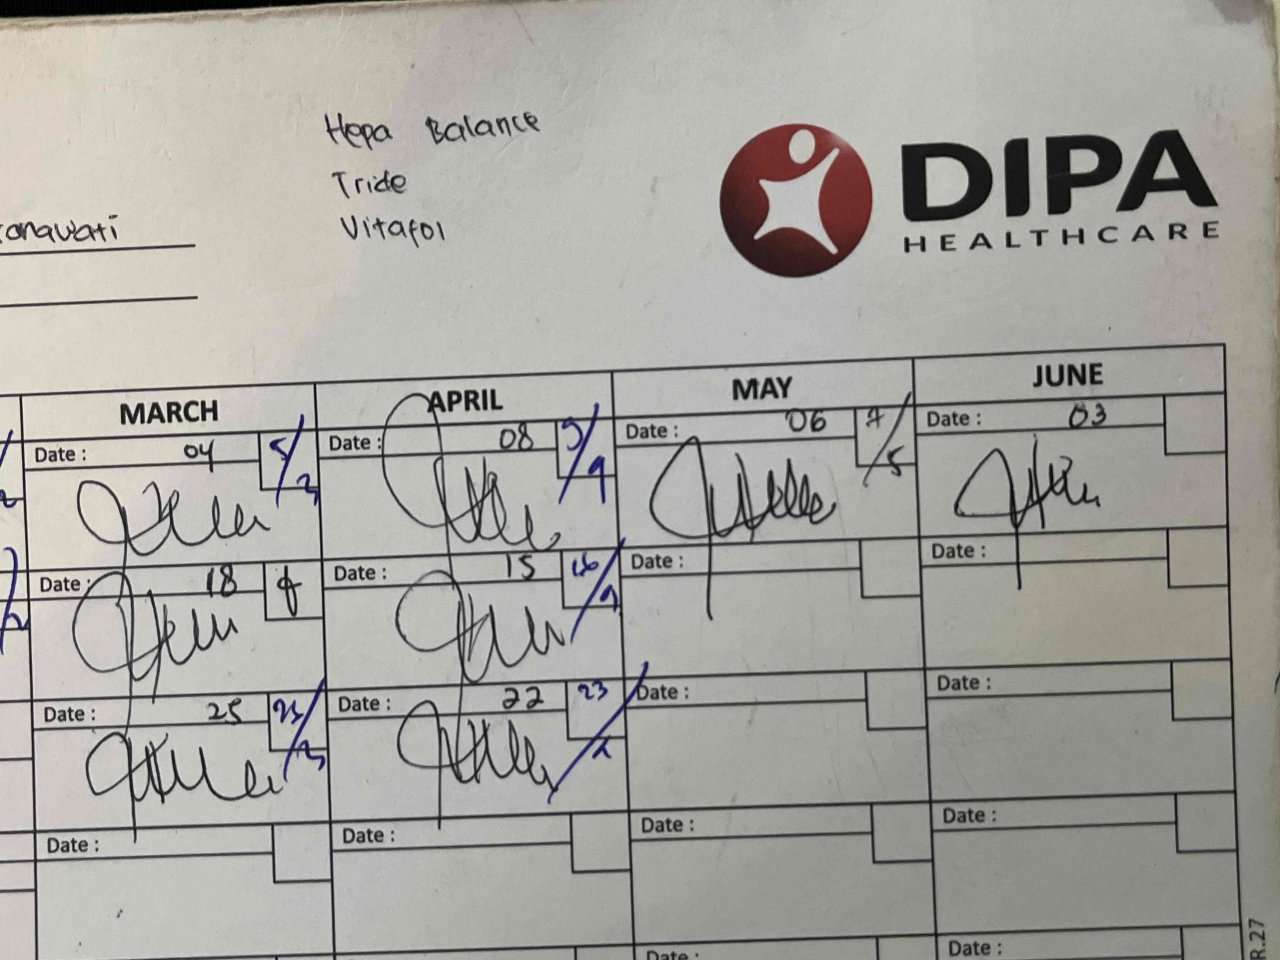 Hepa Balance
Tride
Vitafol
DIPA
HEALTHCARE
MARCH APRIL MAY JUNE
Date : 04 5/3 Date : 08 9/4 Date : 06 7/5 Date : 03
Date : 18 Date : 15 16/4 Date : Date :
Date : 25 Date : 22 23 Date : Date :
Date : Date : Date : Date :
Date : Date :
R.27